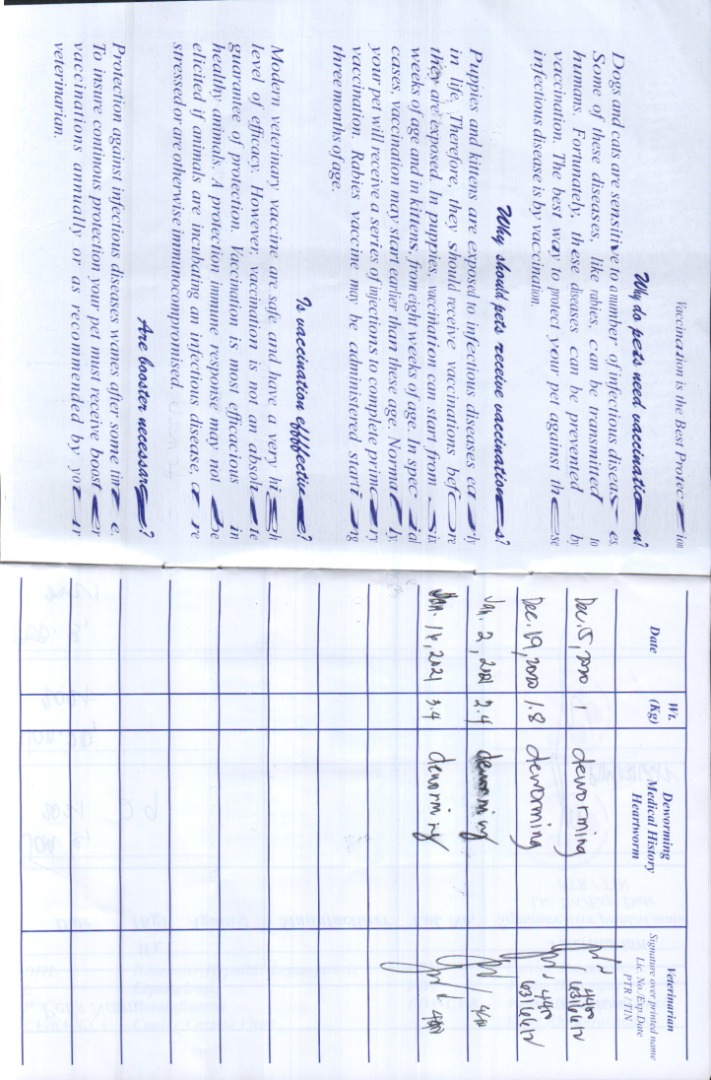 Vaccination is the Best Protection
Why do pets need vaccination?
Dogs and cats are sensitive to a number of infectious diseases.
Some of these diseases, like rabies, can be transmitted to
humans. Fortunately, these diseases can be prevented by
vaccination. The best way to protect your pet against these
infectious disease is by vaccination.
Why should pets receive vaccinations?
Puppies and kittens are exposed to infectious diseases early
in life. Therefore, they should receive vaccinations before
they are exposed. In puppies, vaccination can start from six
weeks of age and in kittens, from eight weeks of age. In special
cases, vaccination may start earlier than these age. Normally,
your pet will receive a series of injections to complete primary
vaccination. Rabies vaccine may be administered starting
three months of age.
Is vaccination efffective?
Modern veterinary vaccine are safe, and have a very high
level of efficacy. However, vaccination is not an absolute
guarantee of protection. Vaccination is most efficacious in
healthy animals. A protection immune response may not be
elicited if animals are incubating an infectious disease, are
stressed or are otherwise immunocompromised.
Are booster necessary?
Protection against infectious diseases wanes after some time.
To insure continous protection your pet must receive booster
vaccinations annually or as recommended by your
veterinarian.
Date
Wt.
(Kg)
Deworming
Medical History
Heartworm
Veterinarian
Signature over printed name
Lic. No./Exp.Date
PTR / TIN
Dec. 5, 2020 1 deworming
Dec. 19, 2020 1.8 deworming
Jan. 2, 2021 2.4 deworming
Jan. 14, 2021 3.4 deworming